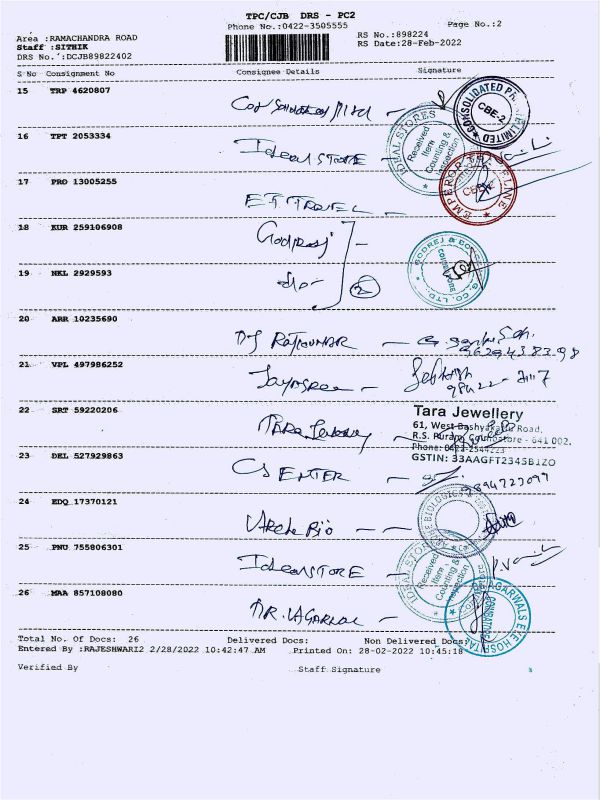 TPC/CJB DRS - PC2
Phone No.:0422-3505555
Page No.:2
Area :RAMACHANDRA ROAD
RS No.:898224
Staff :SITHIK
RS Date:28-Feb-2022
DRS No.:DCJB89822402
S No Consignment No Consignee Details Signature
15 TRP 4620807
CONSOLIDATED
CBE-2
LIMITED
16 TPT 2053334
Ideal STORE
IDEAL STORES
Received
Item
Counting &
Inspection
17 PRO 13005255
EJ TRAVEL
EMPEROR
CBE-2
18 KUR 259106908
Godrej
GODREJ &
CO. LTD.
COIMBATORE
19 NKL 2929593
-do-
2
20 ARR 10235690
DJ Rajkumar
21 VPL 497986252
Jayasree
22 SRT 59220206
Tara Jewellery
Tara Jewellery
61, West Bashyakaralu Road,
R.S. Puram, Coimbatore - 641 002.
Phone: 0422-2544223
GSTIN: 33AAGFT2345B1ZO
23 DEL 527929863
CS ENTER
9894723097
24 EDQ 17370121
BIOLOGICS
25 PNU 755806301
Ideal STORE
IDEAL STORES
Received
Item
Counting &
Inspection
26 MAA 857108080
DR. AGARWAL
AGARWALS EYE HOSPITAL
Total No. Of Docs: 26 Delivered Docs: Non Delivered Docs:
Entered By :RAJESHWARI2 2/28/2022 10:42:47 AM Printed On: 28-02-2022 10:45:18
Verified By Staff Signature